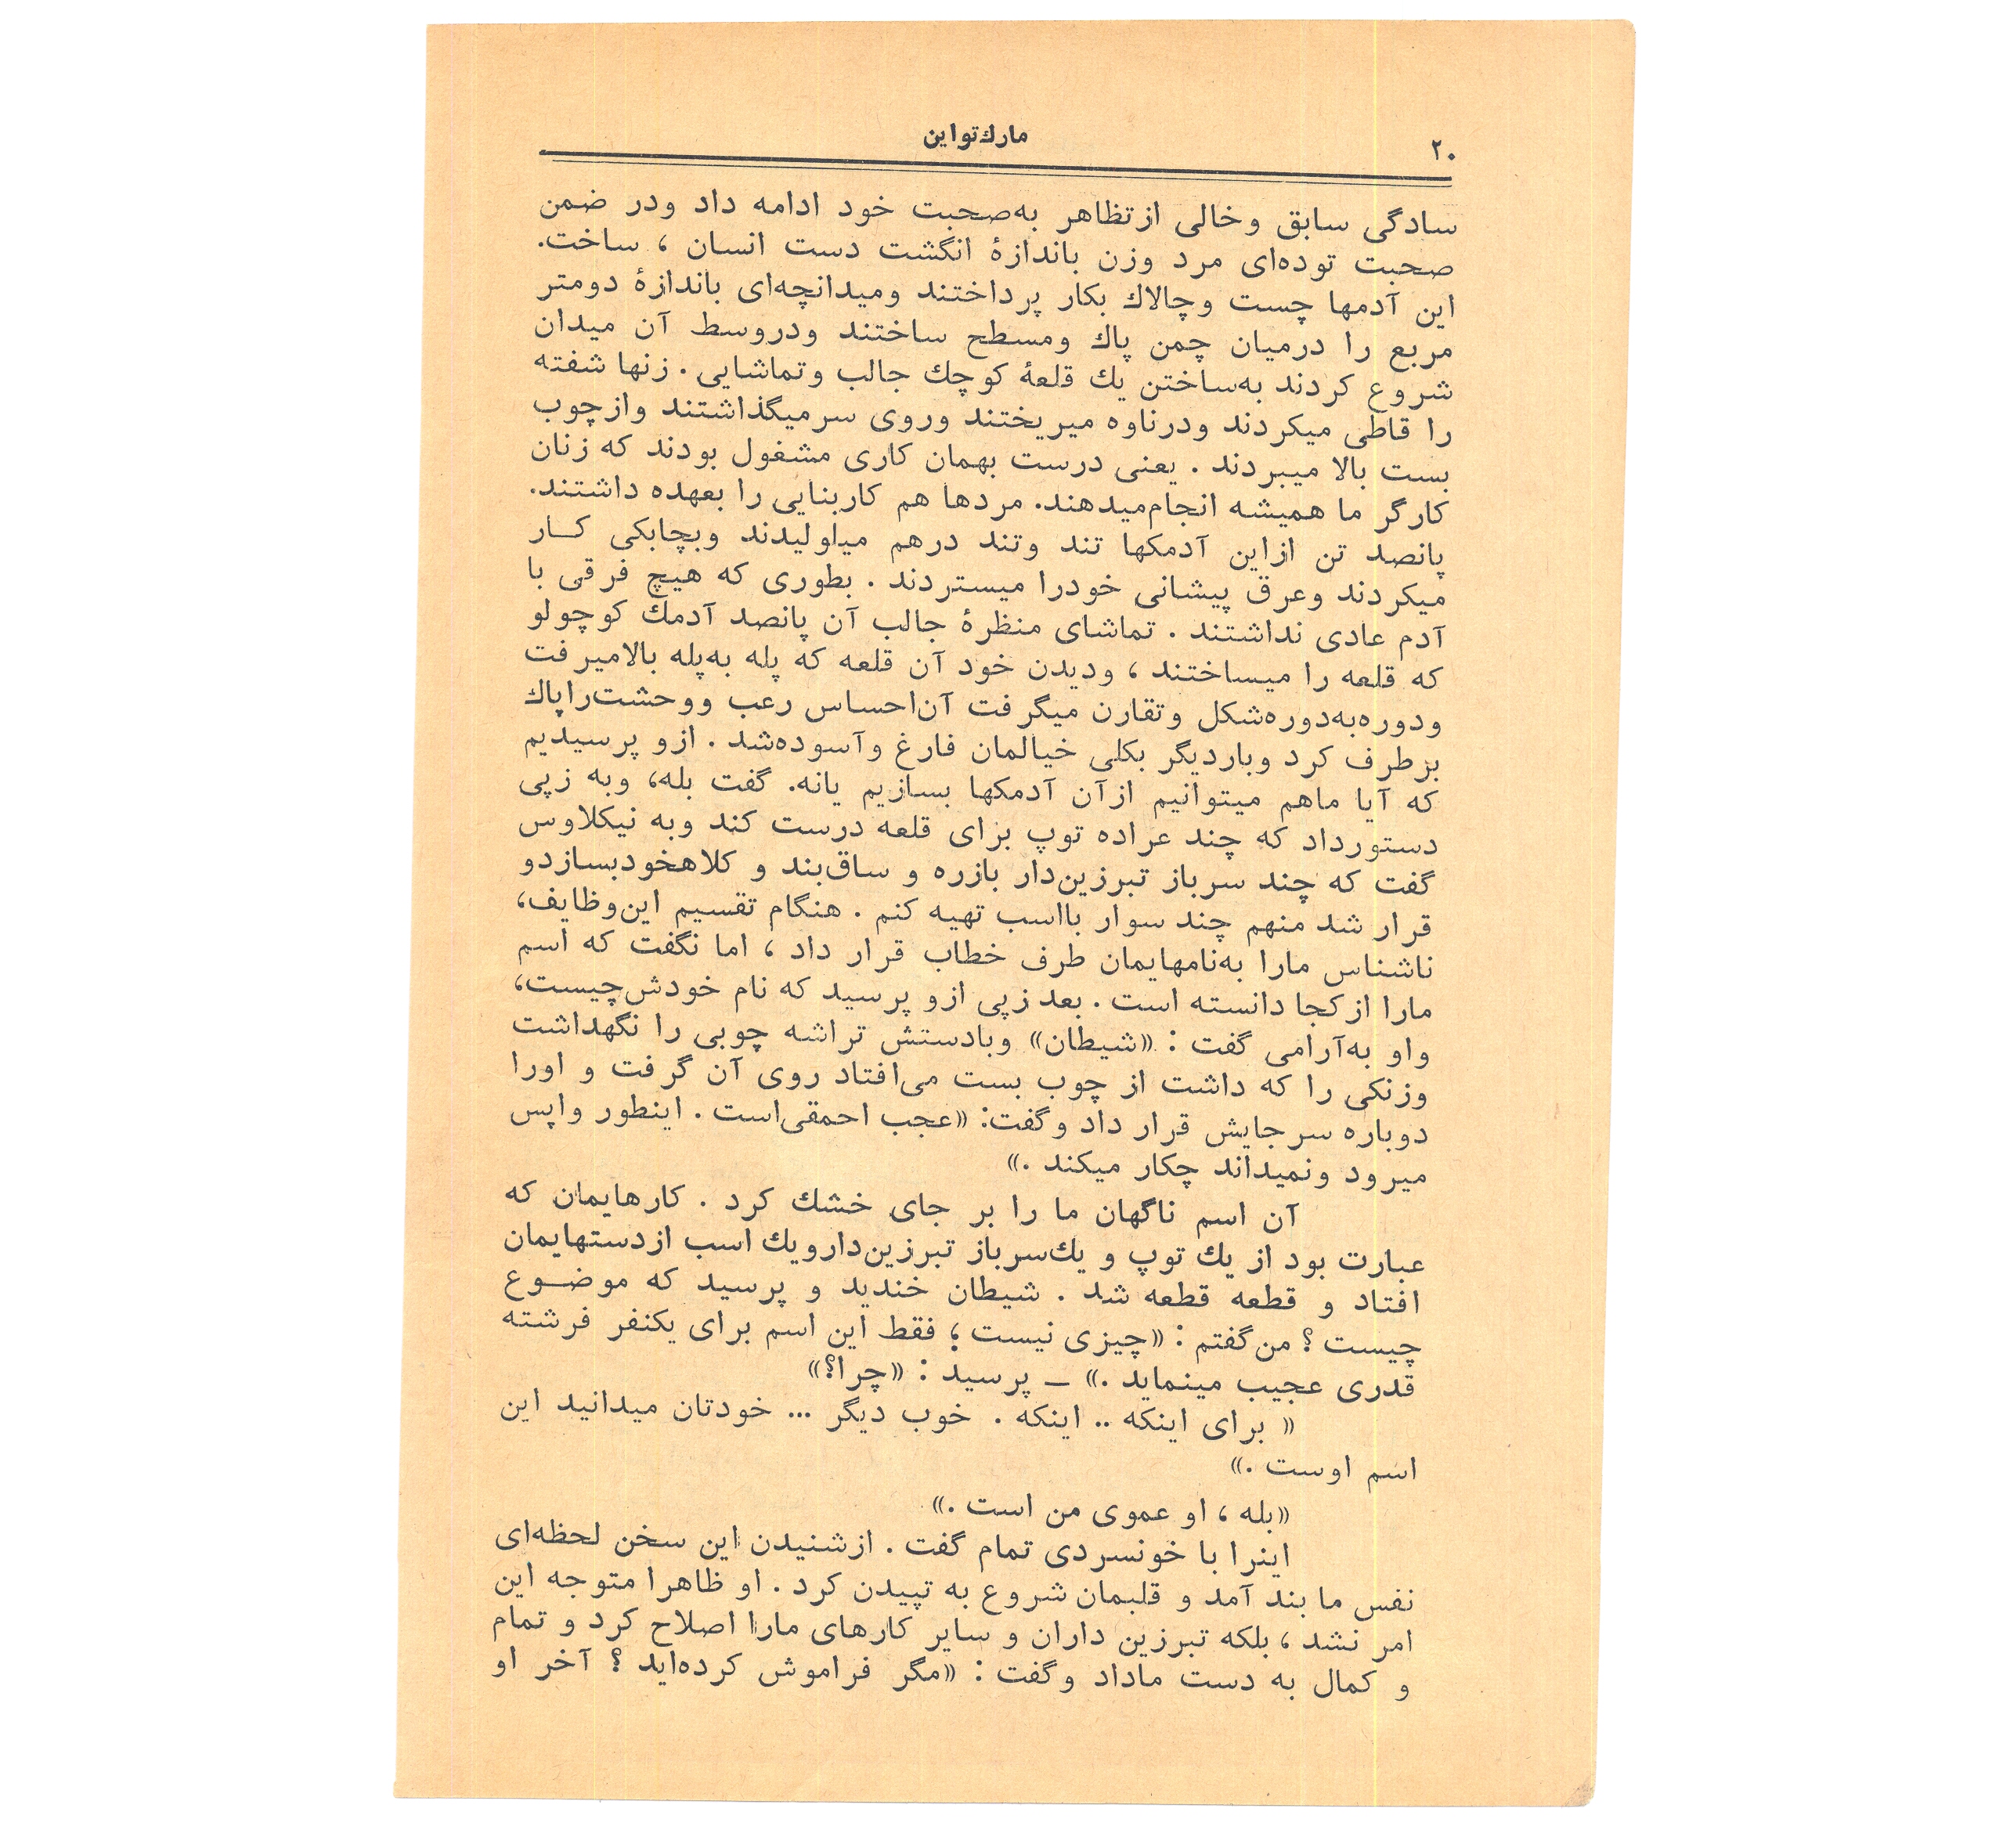 ۲۰
مارك‌تواین
سادگی سابق وخالی ازتظاهر به‌صحبت خود ادامه داد ودر ضمن
صحبت توده‌ای مرد وزن باندازهٔ انگشت دست انسان ، ساخت.
این آدمها چست وچالاك بكار پرداختند ومیدانچه‌ای باندازهٔ دومتر
مربع را درمیان چمن پاك ومسطح ساختند ودروسط آن میدان
شروع كردند به‌ساختن یك قلعهٔ كوچك جالب وتماشایی . زنها شفته
را قاطی میكردند ودرناوه میریختند وروی سرمیگذاشتند وازچوب
بست بالا میبردند . یعنی درست بهمان كاری مشغول بودند كه زنان
كارگر ما همیشه انجام‌میدهند. مردها هم كاربنایی را بعهده داشتند.
پانصد تن ازاین آدمكها تند وتند درهم میاولیدند وبچابكی كــار
میكردند وعرق پیشانی خودرا میستردند . بطوری كه هیچ فرقی با
آدم عادی نداشتند . تماشای منظرهٔ جالب آن پانصد آدمك كوچولو
كه قلعه را میساختند ، ودیدن خود آن قلعه كه پله به‌پله بالامیرفت
ودوره‌به‌دوره‌شكل وتقارن میگرفت آن‌احساس رعب ووحشت‌راپاك
برطرف كرد وباردیگر بكلی خیالمان فارغ وآسوده‌شد . ازو پرسیدیم
كه آیا ماهم میتوانیم ازآن آدمكها بسازیم یانه. گفت بله، وبه زپی
دستورداد كه چند عراده توپ برای قلعه درست كند وبه نیكلاوس
گفت كه چند سرباز تبرزین‌دار بازره و ساق‌بند و كلاهخودبسازدو
قرار شد منهم چند سوار بااسب تهیه كنم . هنگام تقسیم این‌وظایف،
ناشناس مارا به‌نامهایمان طرف خطاب قرار داد ، اما نگفت كه اسم
مارا ازكجا دانسته است . بعد زپی ازو پرسید كه نام خودش‌چیست،
واو به‌آرامی گفت : «شیطان» وبادستش تراشه چوبی را نگهداشت
وزنكی را كه داشت از چوب بست می‌افتاد روی آن گرفت و اورا
دوباره سرجایش قرار داد وگفت: «عجب احمقی‌است . اینطور واپس
میرود ونمیداند چكار میكند .»
آن اسم ناگهان ما را بر جای خشك كرد . كارهایمان كه
عبارت بود از یك توپ و یك‌سرباز تبرزین‌دارویك اسب ازدستهایمان
افتاد و قطعه قطعه شد . شیطان خندید و پرسید كه موضــوع
چیست ؟ من‌گفتم : «چیزی نیست ؛ فقط این اسم برای یكنفر فرشته
قدری عجیب مینماید .» ــ پرسید : «چرا؟»
« برای اینكه .. اینكه . خوب دیگر ... خودتان میدانید این
اسم اوست .»
«بله ، او عموی من است .»
اینرا با خونسردی تمام گفت . ازشنیدن این سخن لحظه‌ای
نفس ما بند آمد و قلبمان شروع به تپیدن كرد . او ظاهرا متوجه این
امر نشد ، بلكه تبرزین داران و سایر كارهای مارا اصلاح كرد و تمام
و كمال به دست ماداد وگفت : «مگر فراموش كرده‌اید ؟ آخر او